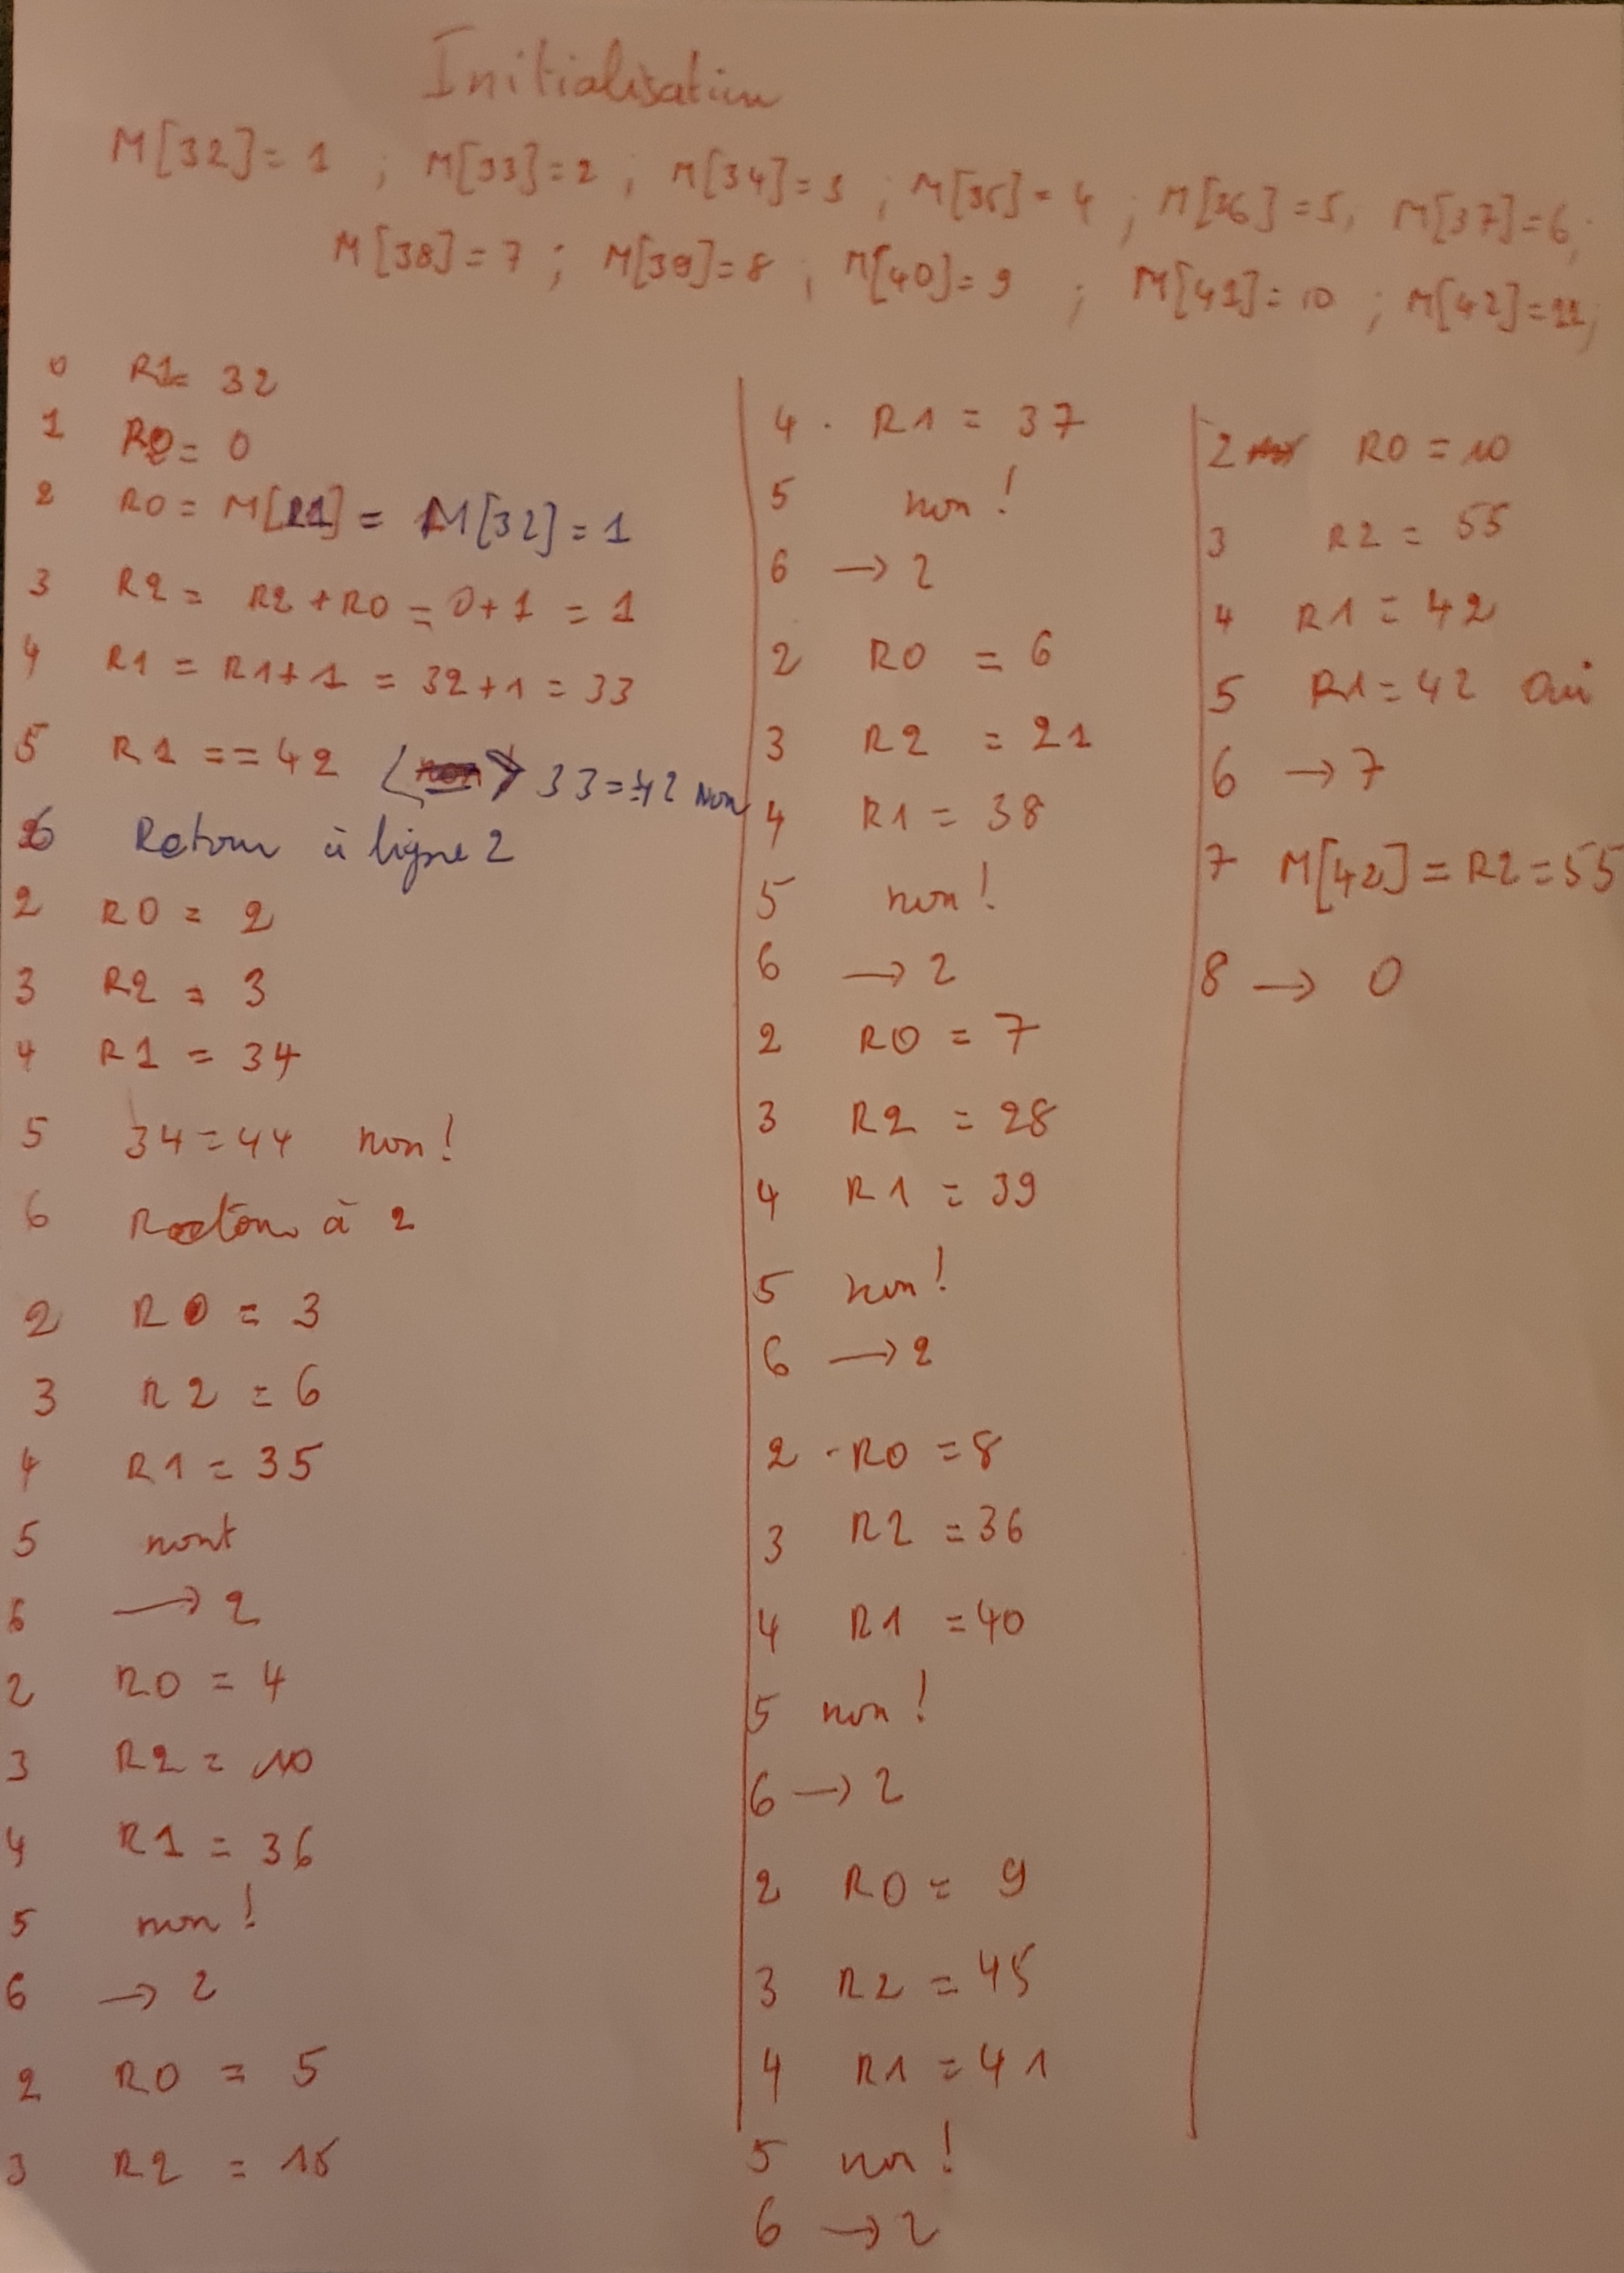 Initialisation
M[32]= 1 ; M[33]=2 ; M[34]=3 ; M[35]=4 ; M[36]=5; M[37]=6;
M[38]=7 ; M[39]=8 ; M[40]=9 ; M[41]=10 ; M[42]=11;
0 R1= 32
1 R2= 0
2 R0= M[R1] = M[32]=1
3 R2= R2+R0=0+1 = 1
4 R1 = R1+1 = 32+1=33
5 R1 ==42 33==42 Non
6 Retour à ligne 2
2 R0 = 2
3 R2 = 3
4 R1 = 34
5 34=44 non!
6 Retour à 2
2 R0 = 3
3 R2 = 6
4 R1 = 35
5 non!
6 → 2
2 R0 = 4
3 R2 = 10
4 R1 = 36
5 non!
6 → 2
2 R0 = 5
3 R2 = 15
4 . R1 = 37
5 non!
6 → 2
2 R0 = 6
3 R2 = 21
4 R1 = 38
5 non!
6 → 2
2 R0 = 7
3 R2 = 28
4 R1 = 39
5 non!
6 → 2
2 - R0 = 8
3 R2 = 36
4 R1 = 40
5 non!
6 → 2
2 R0 = 9
3 R2 = 45
4 R1 = 41
5 non!
6 → 2
2 R0 = 10
3 R2 = 55
4 R1 = 42
5 R1=42 Oui
6 → 7
7 M[42]=R2=55
8 → 0